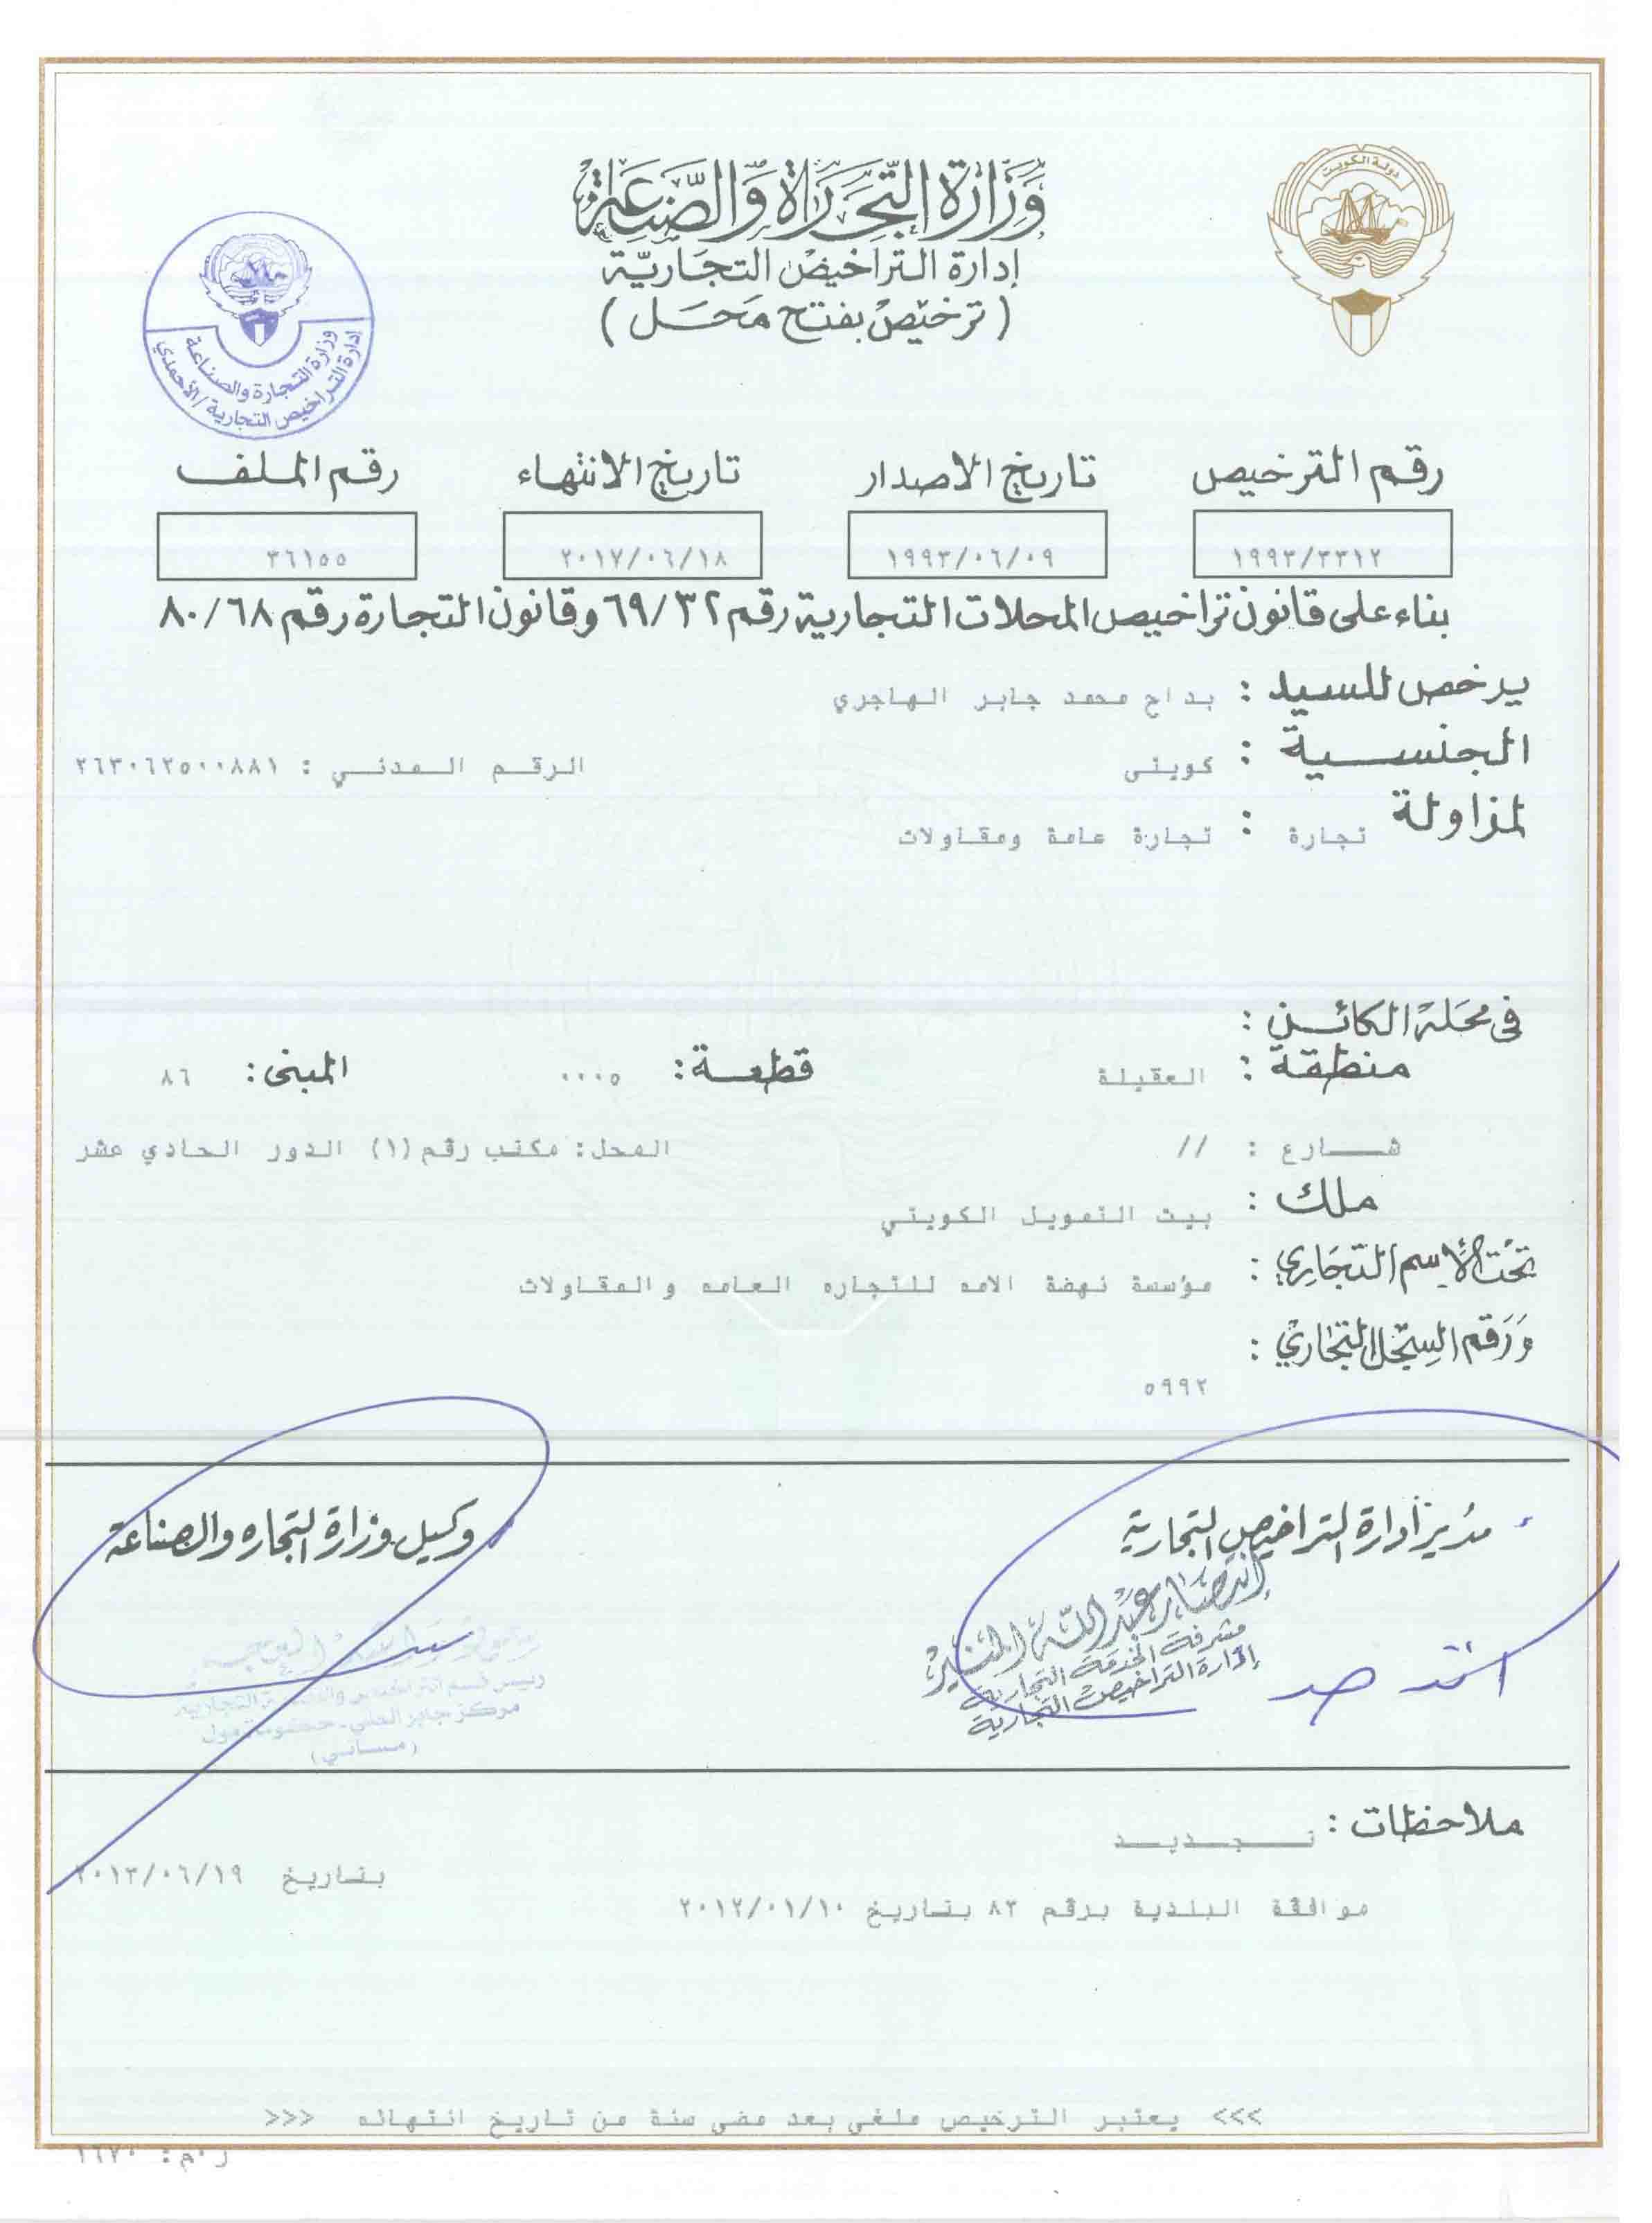 دولة الكويت
وزارة التجارة والصناعة
إدارة التراخيص التجارية
(ترخيص بفتح محل)
وزارة التجارة والصناعة
إدارة التراخيص التجارية/الأحمدي
رقم الترخيص تاريخ الاصدار تاريخ الانتهاء رقم الملف
١٩٩٣/٣٣١٢ ١٩٩٣/٠٦/٠٩ ٢٠١٧/٠٦/١٨ ٣٦١٥٥
بناء على قانون تراخيص المحلات التجارية رقم ٦٩/٣٢ وقانون التجارة رقم ٨٠/٦٨
يرخص للسيد : بداح محمد جابر الهاجري
الجنسية : كويتى الرقم المدني : ٢٦٣٠٦٢٥٠٠٨٨١
لمزاولة تجارة : تجارة عامة ومقاولات
فى محله الكائن :
منطقة : العقيلة قطعة : ٠٠٠٥ المبنى : ٨٦
شارع : // المحل: مكتب رقم (١) الدور الحادي عشر
ملك : بيت التمويل الكويتي
تحت الأسم التجاري : مؤسسة نهضة الامه للتجاره العامه والمقاولات
ورقم السجل التجاري :
٥٩٩٢
مدير ادارة التراخيص التجارية وكيل وزارة التجاره والصناعة
انتصار عبدالله المنير
مشرفة الخدمة التجارية
إدارة التراخيص التجارية
رئيس قسم التراخيص التجارية
مركز جابر العلي - حكومة مول
(مسائي)
ملاحظات : تجديد
بتاريخ ٢٠١٣/٠٦/١٩
موافقة البلدية برقم ٨٢ بتاريخ ٢٠١٢/٠١/١٠
>>> يعتبر الترخيص ملغى بعد مضى سنة من تاريخ انتهائه <<<
ر.م: ١٦٧٠